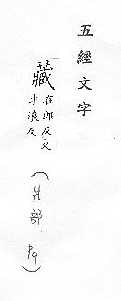 五經文字
藏
在郎反又
才浪反
（艸部
P9）